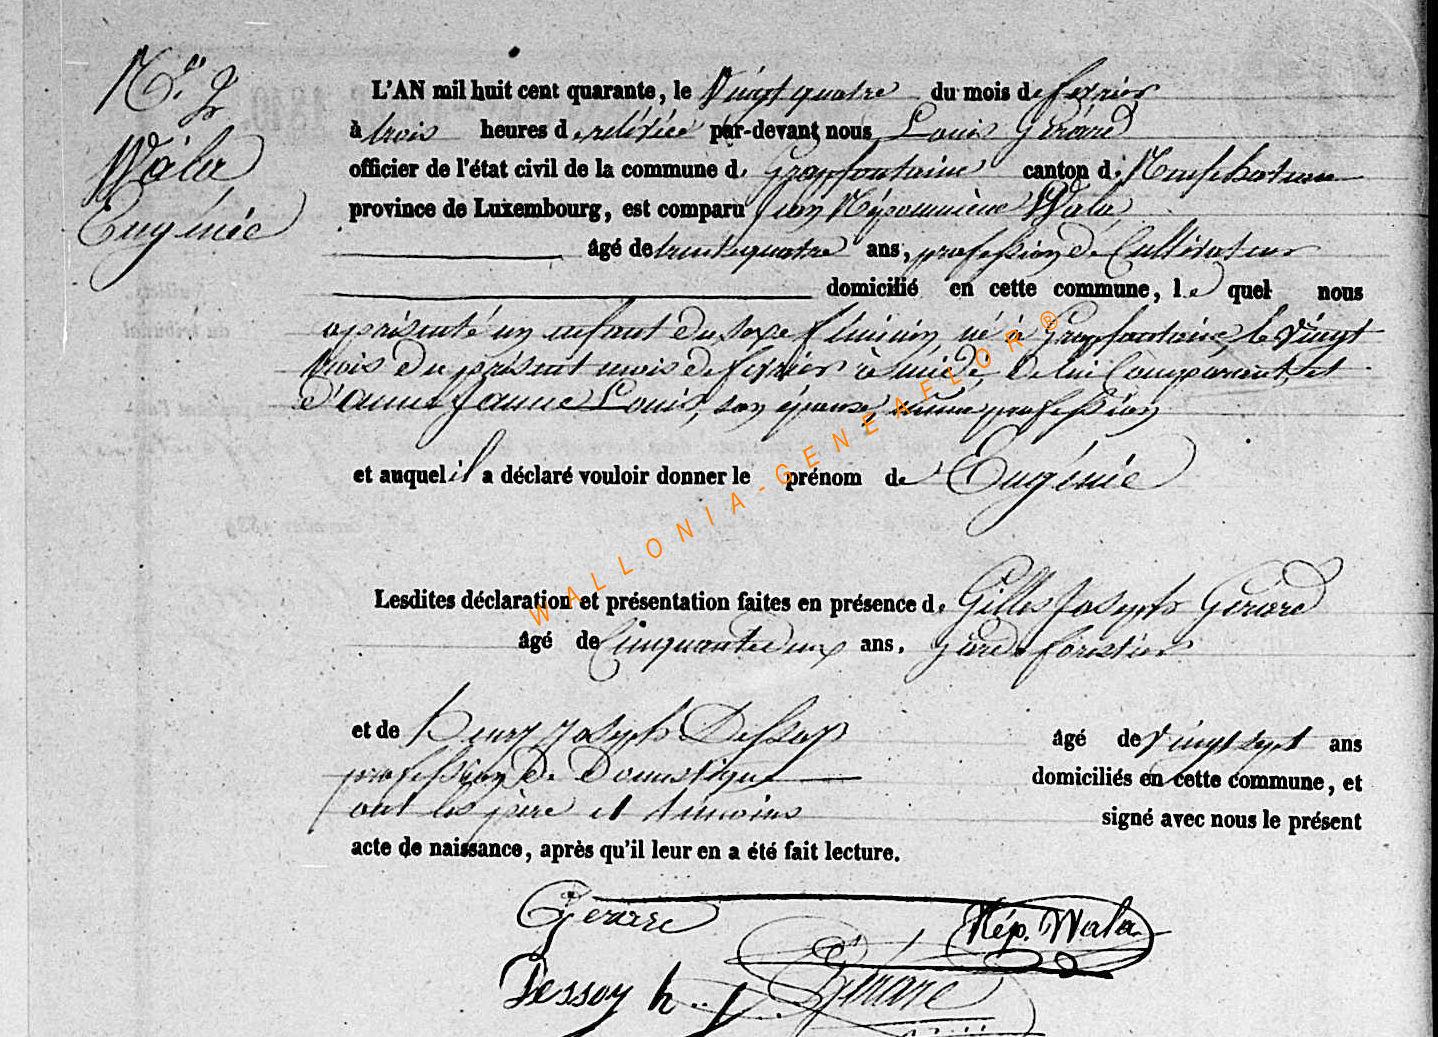 N.° 2
Wala
Eugénie
L'AN mil huit cent quarante, le Vingt quatre du mois de fevrier
à trois heures de relevée par-devant nous Louis Gérard
officier de l'état civil de la commune de Grapfontaine canton de Neufchateau
province de Luxembourg, est comparu Jean Népomucène Wala
âgé de trente quatre ans, profession de Cultivateur
domicilié en cette commune, le quel nous
a présenté un enfant du sexe féminin, né à Grapfontaine, le vingt
trois du présent mois de fevrier à midi, de lui Comparant, et
d'anne Jeanne Louis, son épouse, même profession
et auquel il a déclaré vouloir donner le prénom de Eugénie
Lesdites déclaration et présentation faites en présence de Gilles Joseph Gérard
âgé de Cinquante deux ans. Garde forestier
et de henry Joseph Dessoy âgé de vingt sept ans
profession de Domestique domiciliés en cette commune, et
ont les père et témoins signé avec nous le présent
acte de naissance, après qu'il leur en a été fait lecture.
Gerard
Nép. Wala
Dessoy h. j.
Gérard
WALLONIA-GENEAFLOR®